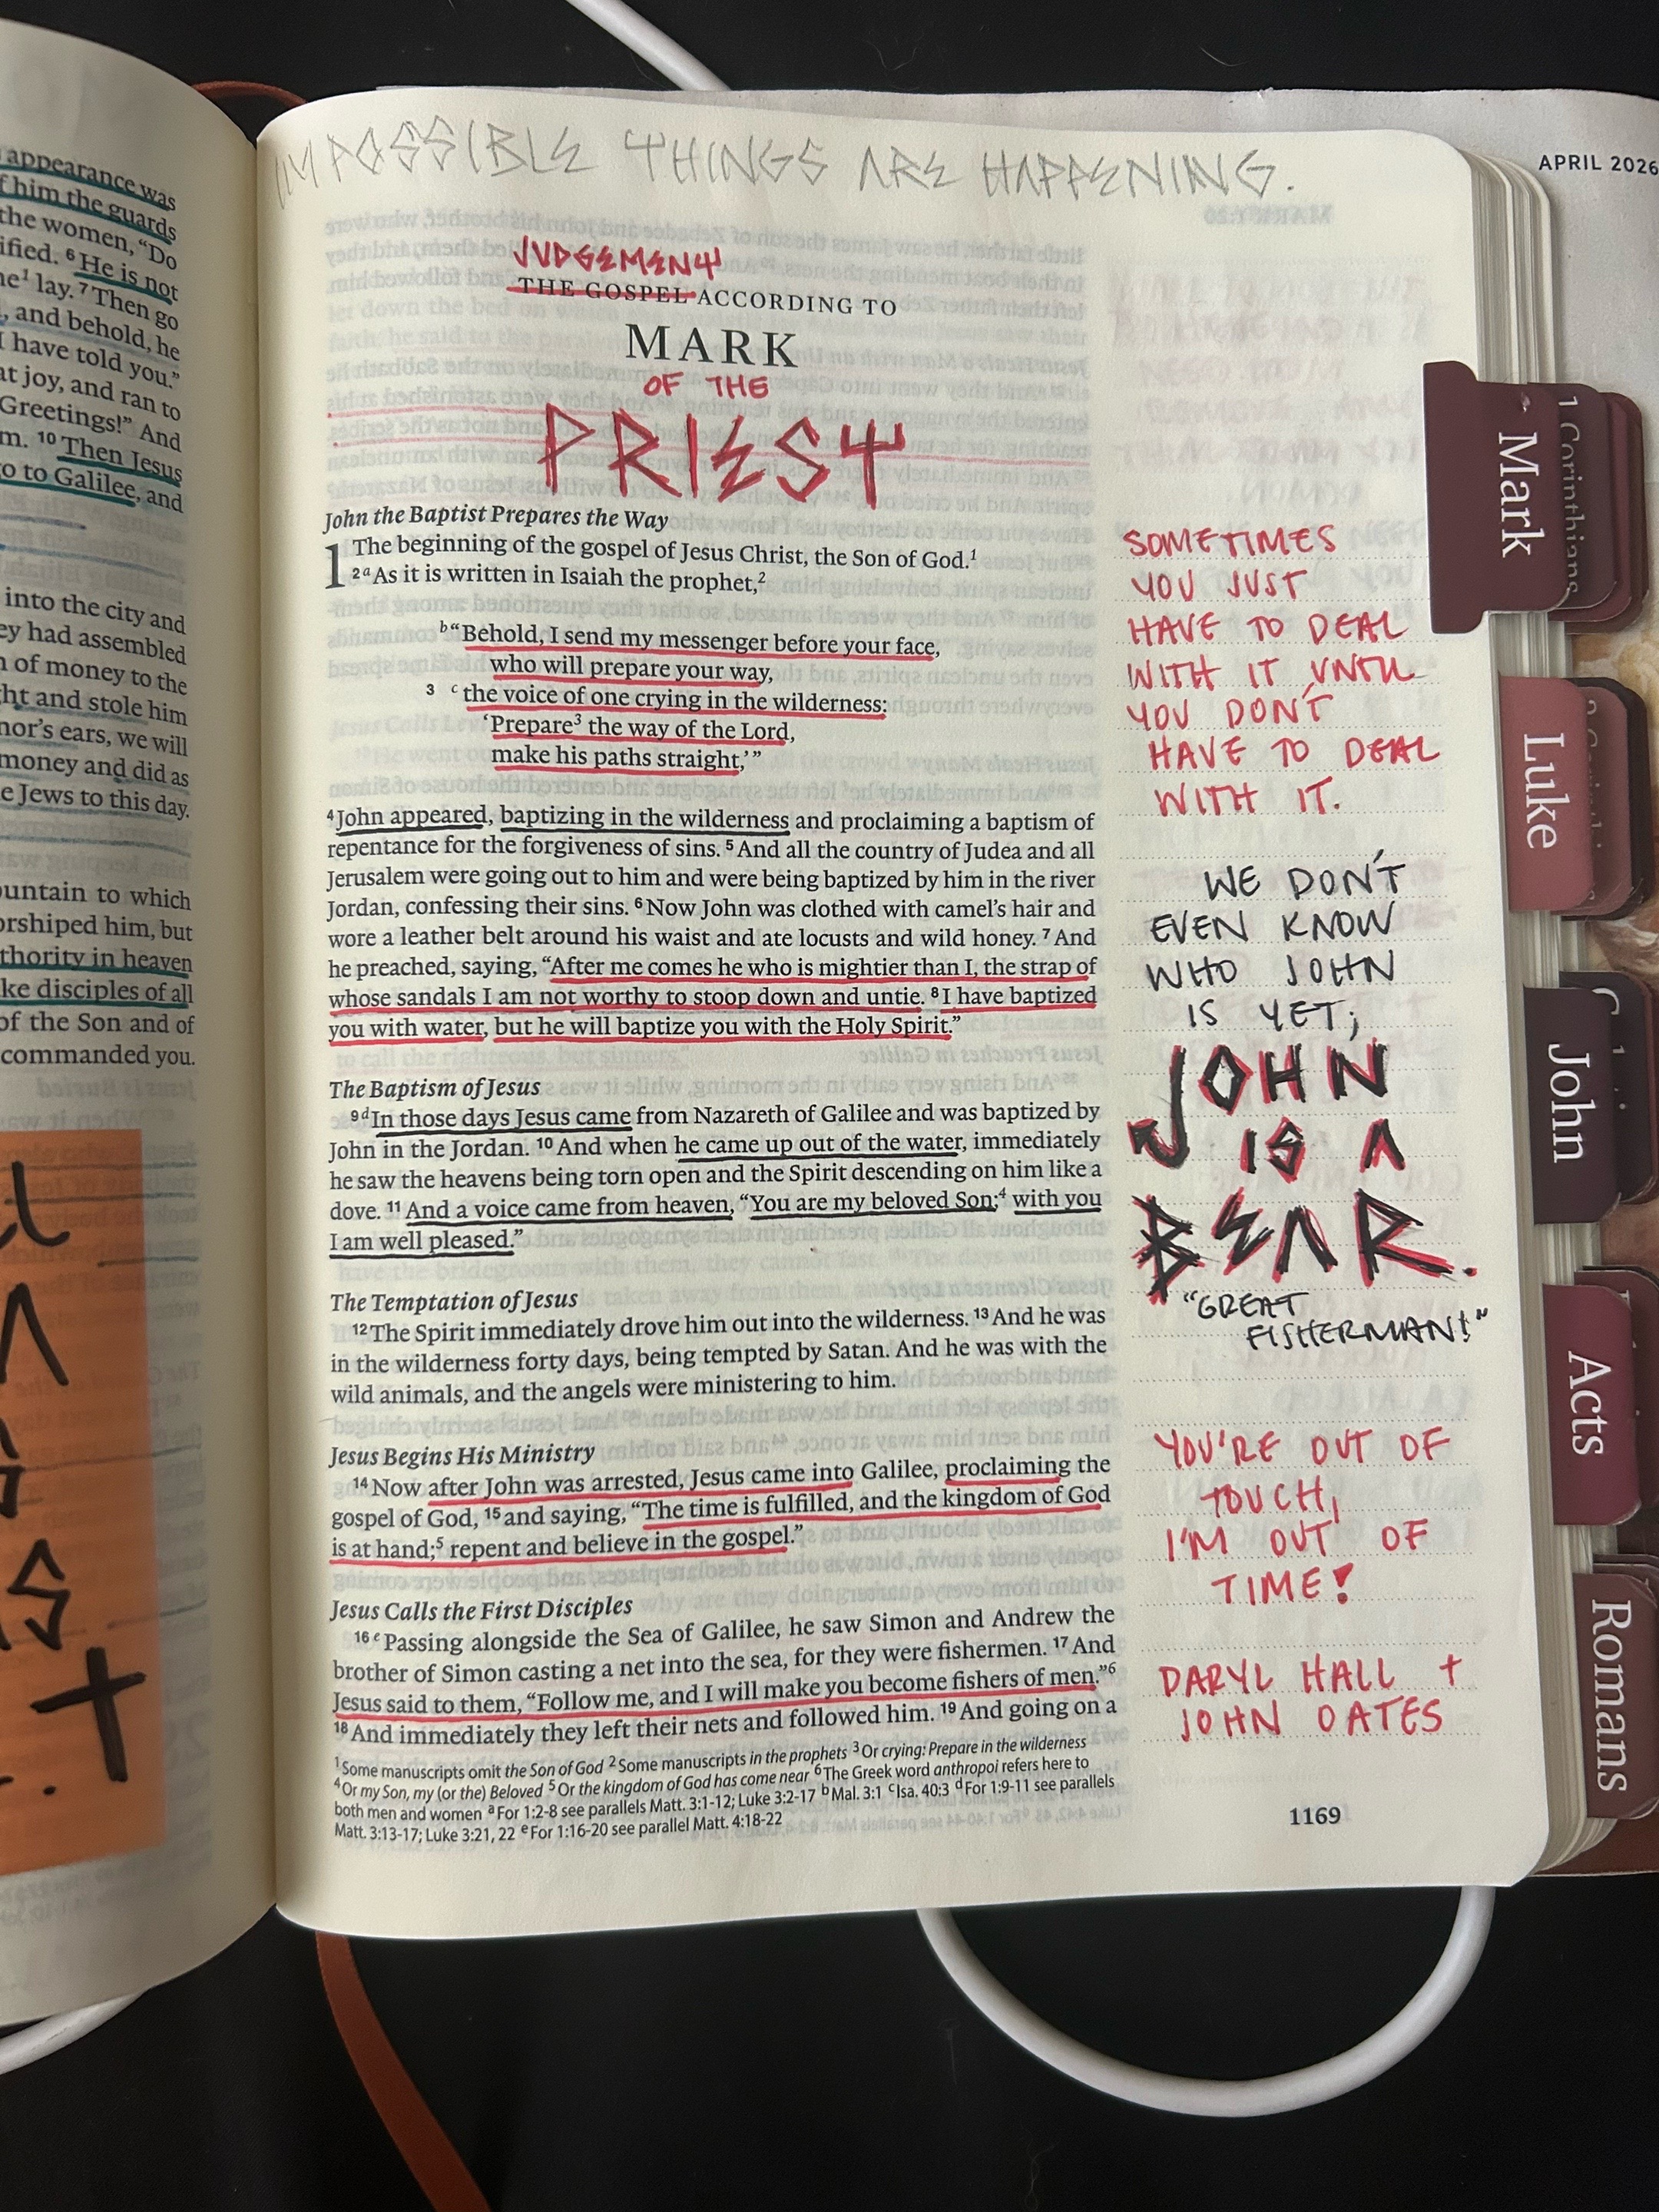 appearance was
f him the guards
the women, “Do
ified. 6 He is not
he1 lay. 7 Then go
, and behold, he
I have told you.”
at joy, and ran to
Greetings!” And
m. 10 Then Jesus
o to Galilee, and
into the city and
ey had assembled
n of money to the
ht and stole him
nor’s ears, we will
money and did as
e Jews to this day.
ountain to which
orshiped him, but
thority in heaven
ke disciples of all
of the Son and of
commanded you.
IMPOSSIBLE THINGS ARE HAPPENING.
JUDGEMENT
THE GOSPEL ACCORDING TO
MARK
OF THE
PRIEST
John the Baptist Prepares the Way
1 The beginning of the gospel of Jesus Christ, the Son of God.1
2a As it is written in Isaiah the prophet,2
b“Behold, I send my messenger before your face,
who will prepare your way,
3 c the voice of one crying in the wilderness:
‘Prepare3 the way of the Lord,
make his paths straight,’”
4 John appeared, baptizing in the wilderness and proclaiming a baptism of
repentance for the forgiveness of sins. 5 And all the country of Judea and all
Jerusalem were going out to him and were being baptized by him in the river
Jordan, confessing their sins. 6 Now John was clothed with camel’s hair and
wore a leather belt around his waist and ate locusts and wild honey. 7 And
he preached, saying, “After me comes he who is mightier than I, the strap of
whose sandals I am not worthy to stoop down and untie. 8 I have baptized
you with water, but he will baptize you with the Holy Spirit.”
The Baptism of Jesus
9d In those days Jesus came from Nazareth of Galilee and was baptized by
John in the Jordan. 10 And when he came up out of the water, immediately
he saw the heavens being torn open and the Spirit descending on him like a
dove. 11 And a voice came from heaven, “You are my beloved Son;4 with you
I am well pleased.”
The Temptation of Jesus
12 The Spirit immediately drove him out into the wilderness. 13 And he was
in the wilderness forty days, being tempted by Satan. And he was with the
wild animals, and the angels were ministering to him.
Jesus Begins His Ministry
14 Now after John was arrested, Jesus came into Galilee, proclaiming the
gospel of God, 15 and saying, “The time is fulfilled, and the kingdom of God
is at hand;5 repent and believe in the gospel.”
Jesus Calls the First Disciples
16 e Passing alongside the Sea of Galilee, he saw Simon and Andrew the
brother of Simon casting a net into the sea, for they were fishermen. 17 And
Jesus said to them, “Follow me, and I will make you become fishers of men.”6
18 And immediately they left their nets and followed him. 19 And going on a
1 Some manuscripts omit the Son of God 2 Some manuscripts in the prophets 3 Or crying: Prepare in the wilderness
4 Or my Son, my (or the) Beloved 5 Or the kingdom of God has come near 6 The Greek word anthropoi refers here to
both men and women a For 1:2-8 see parallels Matt. 3:1-12; Luke 3:2-17 b Mal. 3:1 c Isa. 40:3 d For 1:9-11 see parallels
Matt. 3:13-17; Luke 3:21, 22 e For 1:16-20 see parallel Matt. 4:18-22
1169
SOMETIMES
YOU JUST
HAVE TO DEAL
WITH IT UNTIL
YOU DON'T
HAVE TO DEAL
WITH IT.
WE DON'T
EVEN KNOW
WHO JOHN
IS YET;
JOHN
IS A
BEAR.
"GREAT
FISHERMAN!"
YOU'RE OUT OF
TOUCH,
I'M OUT OF
TIME!
DARYL HALL +
JOHN OATES
APRIL 2026
Mark
1 Corinthians
Luke
John
Acts
Romans